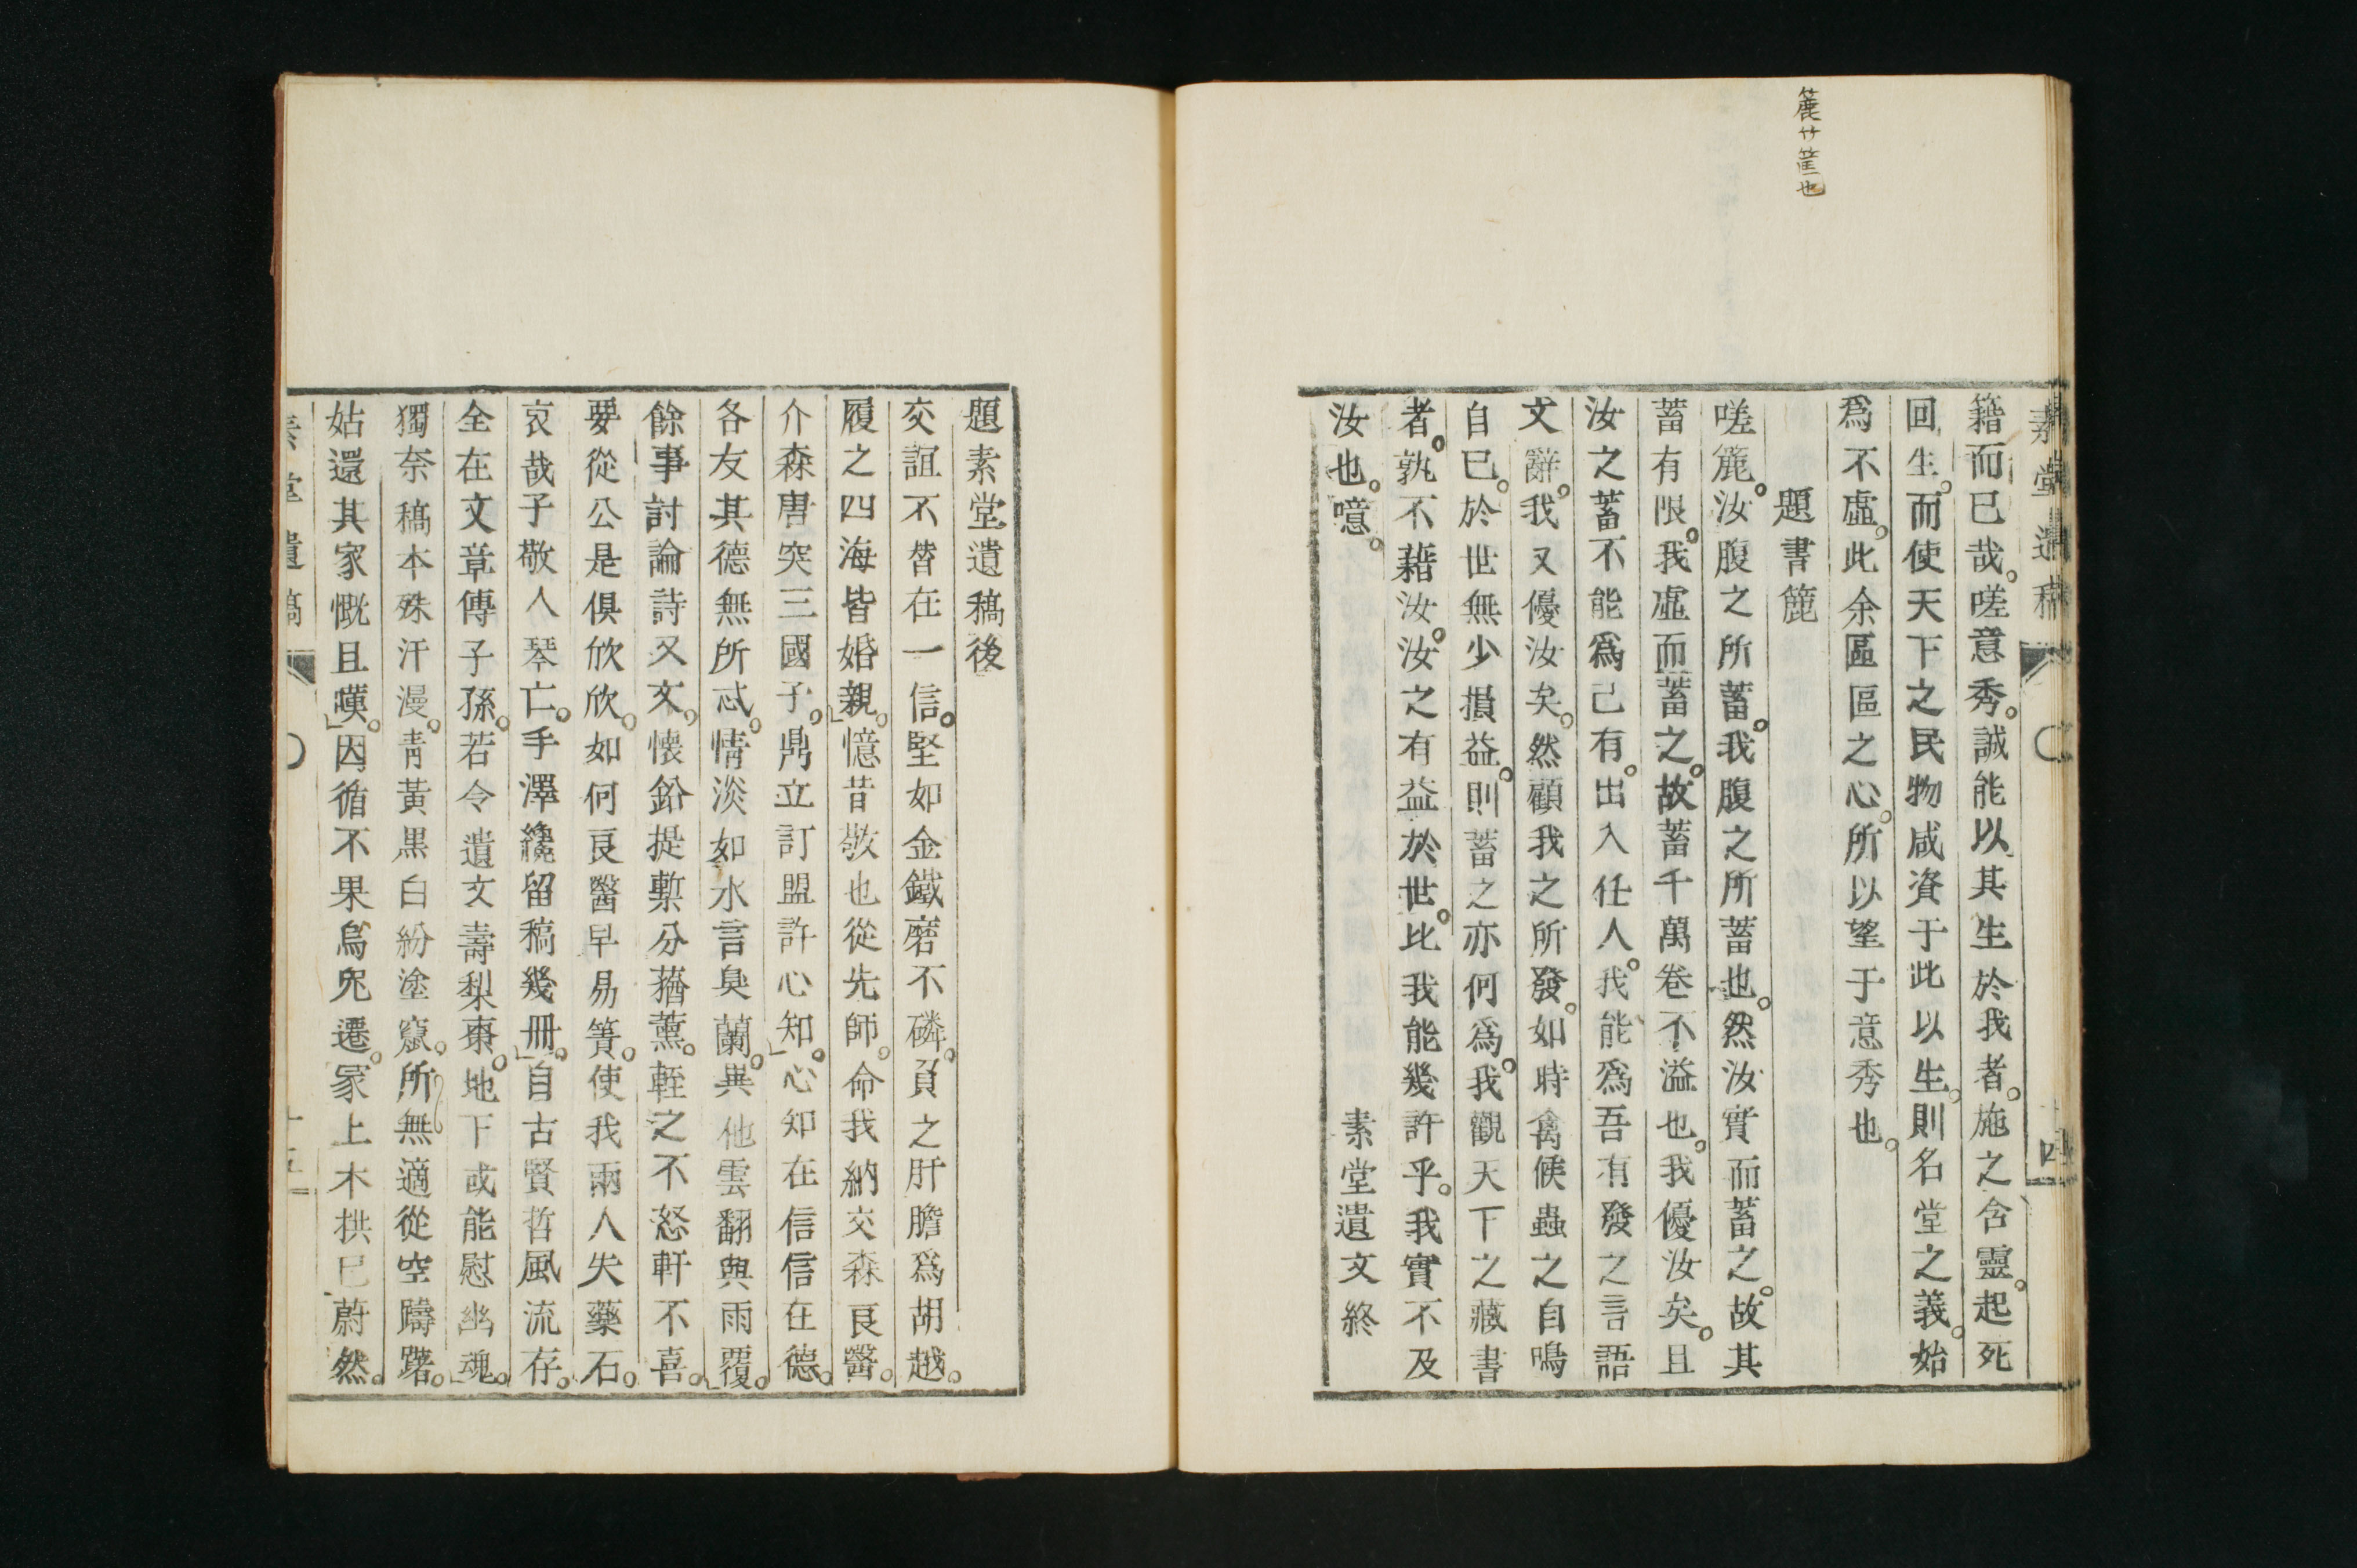 簏竹筐也
素堂遺稿
四
籍而已哉。嗟意秀。誠能以其生於我者。施之含靈。起死
回生。而使天下之民物咸資于此以生。則名堂之義。始
爲不虛。此余區區之心。所以望于意秀也。
題書簏
嗟簏。汝腹之所蓄。我腹之所蓄也。然汝實而蓄之。故其
蓄有限。我虛而蓄之。故蓄千萬卷不溢也。我優汝矣。且
汝之蓄不能爲己有。出入任人。我能爲吾有發之言語
文辭。我又優汝矣。然顧我之所發。如時禽候蟲之自鳴
自已。於世無少損益。則蓄之亦何爲。我觀天下之藏書
者。孰不藉汝。汝之有益於世。比我能幾許乎。我實不及
汝也。噫。
素堂遺文終
題素堂遺稿後
交誼不替在一信。堅如金鐵磨不磷。負之肝膽爲胡越。
履之四海皆婚親。憶昔敬也從先師。命我納交森良醫。
介森唐突三國子。鼎立訂盟許心知。心知在信信在德。
各友其德無所忒。情淡如水言臭蘭。異他雲翻與雨覆。
餘事討論詩又文。懷鉛提槧分蕕薰。輊之不怒軒不喜。
要從公是俱欣欣。如何良醫早易簀。使我兩人失藥石。
哀哉子敬人琴亡。手澤纔留稿幾冊。自古賢哲風流存。
全在文章傳子孫。若令遺文壽梨棗。地下或能慰幽魂。
獨奈稿本殊汗漫。靑黃黒白紛塗竄。所無適從空躊躇。
姑還其家慨且嘆。因循不果烏兔遷。冢上木拱已蔚然。
素堂遺稿